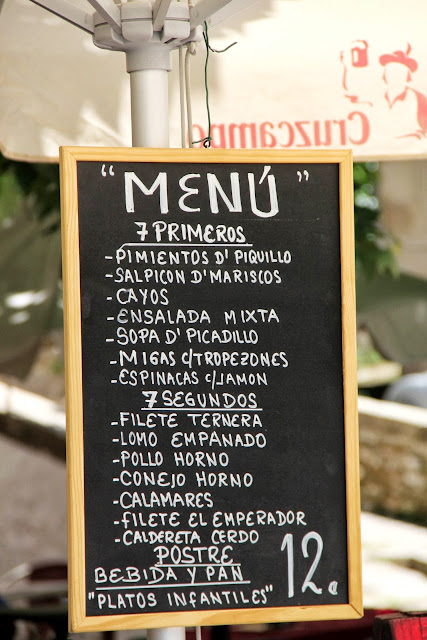 Cruzcampo
"MENÚ"
7 PRIMEROS
-PIMIENTOS D' PIQUILLO
-SALPICON D'MARISCOS
-CAYOS
-ENSALADA MIXTA
-SOPA D' PICADILLO
-MIGAS C/TROPEZONES
-ESPINACAS C/JAMON
7 SEGUNDOS
-FILETE TERNERA
-LOMO EMPANADO
-POLLO HORNO
-CONEJO HORNO
-CALAMARES
-FILETE EL EMPERADOR
-CALDERETA CERDO
POSTRE
BEBIDA Y PAN
"PLATOS INFANTILES"
12€